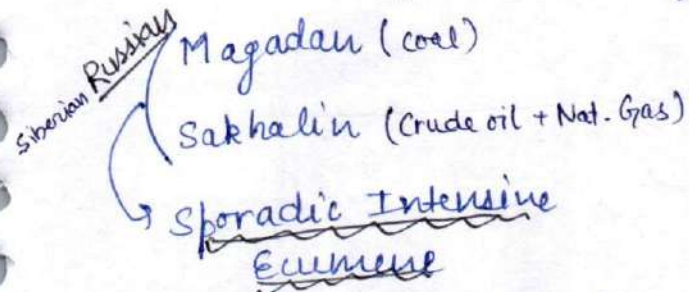 Siberian Russian
Magadan (coal)
Sakhalin (Crude oil + Nat. Gas)
Sporadic Intensive
Ecumene